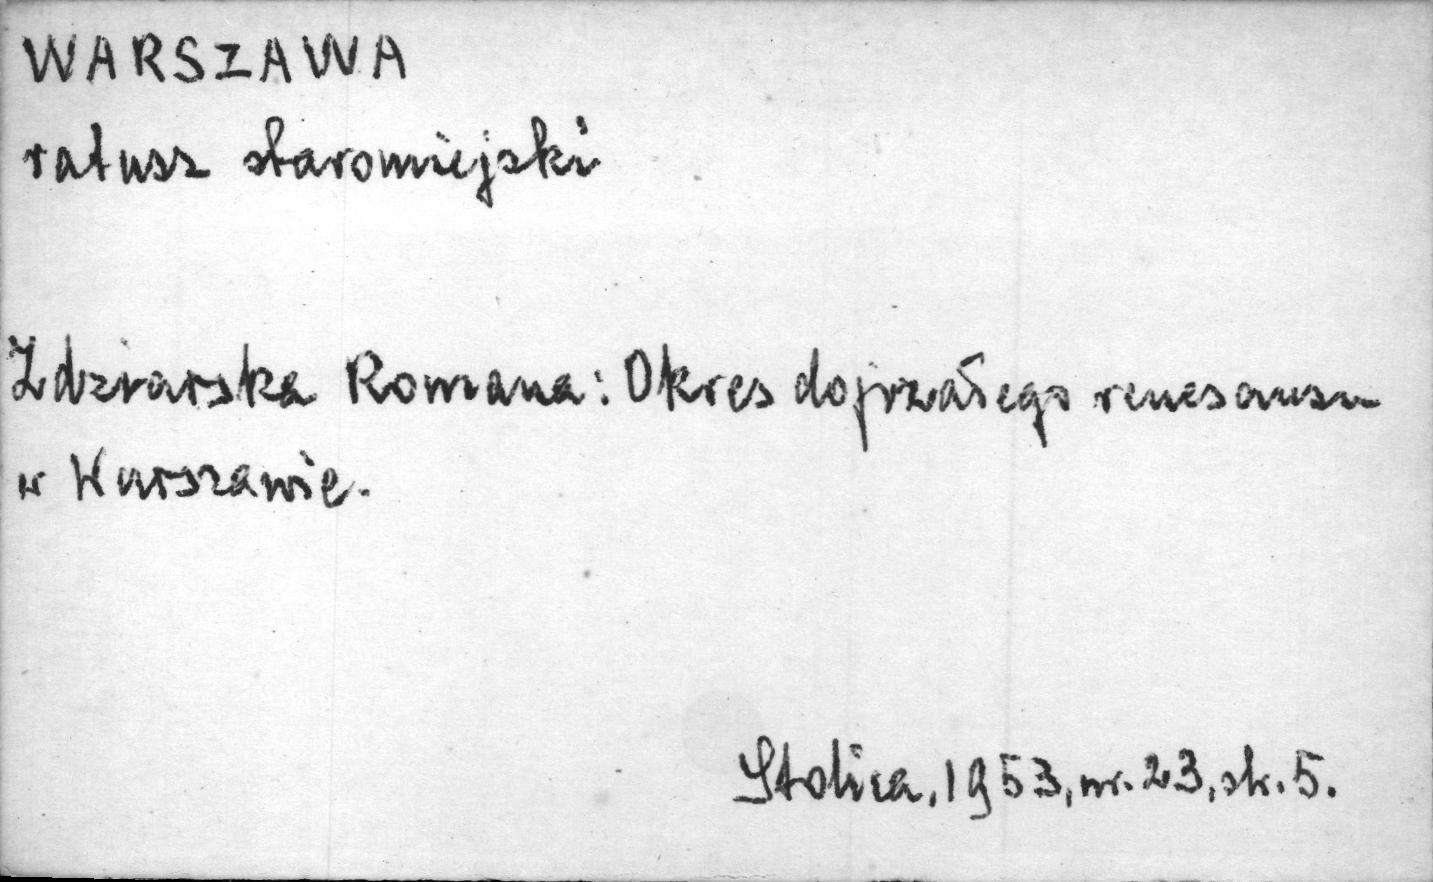 WARSZAWA
ratusz staromiejski
Zdziarska Romana: Okres dojrzałego renesansu
w Warszawie.
Stolica, 1953, nr. 23, str. 5.